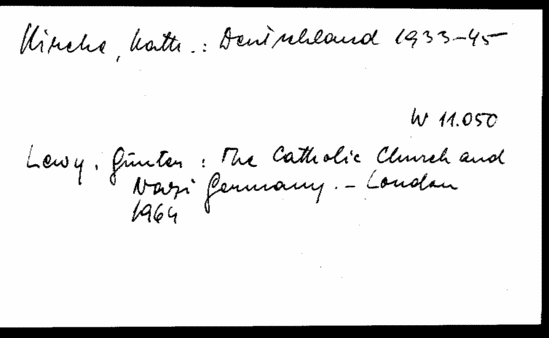 Kirche, kath.: Deutschland 1933-45
W 11.050
Lewy, Günter: The Catholic Church and
Nazi Germany. - London
1964